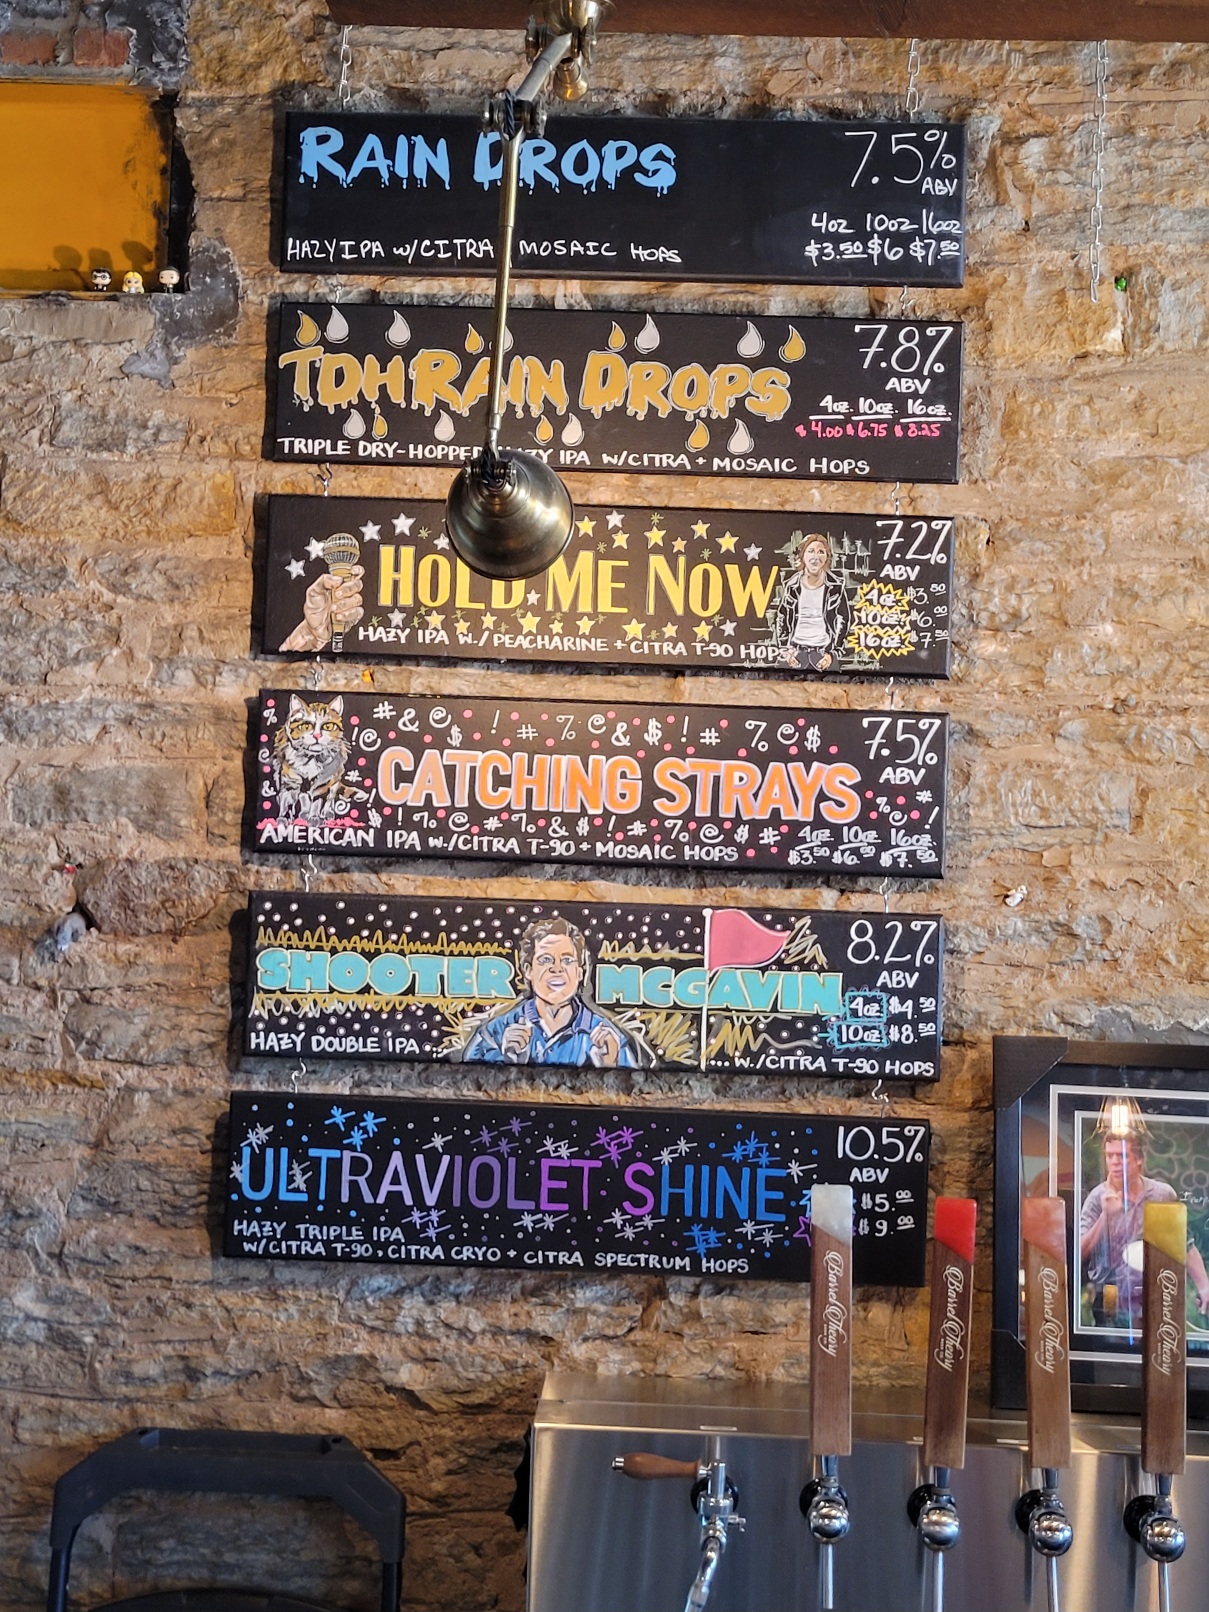 RAIN DROPS
7.5%
ABV
4oz 10oz 16oz
$3.50 $6 $7.50
HAZY IPA w/CITRA MOSAIC HOPS
TDH RAIN DROPS
7.8%
ABV
4oz. 10oz. 16oz.
$4.00 $6.75 $8.25
TRIPLE DRY-HOPPED HAZY IPA W/CITRA + MOSAIC HOPS
HOLD ME NOW
7.2%
ABV
4oz $3.50
10oz $6.00
16oz $7.50
HAZY IPA W./PEACHARINE + CITRA T-90 HOPS
# & @ $ ! # % @ & $ ! # % @ $
CATCHING STRAYS
7.5%
ABV
! % @ # % & $ ! # % @ $ #
4oz. 10oz. 16oz.
$3.50 $6.00 $7.50
AMERICAN IPA W./CITRA T-90 + MOSAIC HOPS
SHOOTER MCGAVIN
8.2%
ABV
4oz $4.50
10oz $8.50
HAZY DOUBLE IPA...
...W./CITRA T-90 HOPS
ULTRAVIOLET SHINE
10.5%
ABV
$5.00
$9.00
HAZY TRIPLE IPA
W/CITRA T-90, CITRA CRYO + CITRA SPECTRUM HOPS
Barrel Theory
Barrel Theory
Barrel Theory
Barrel Theory